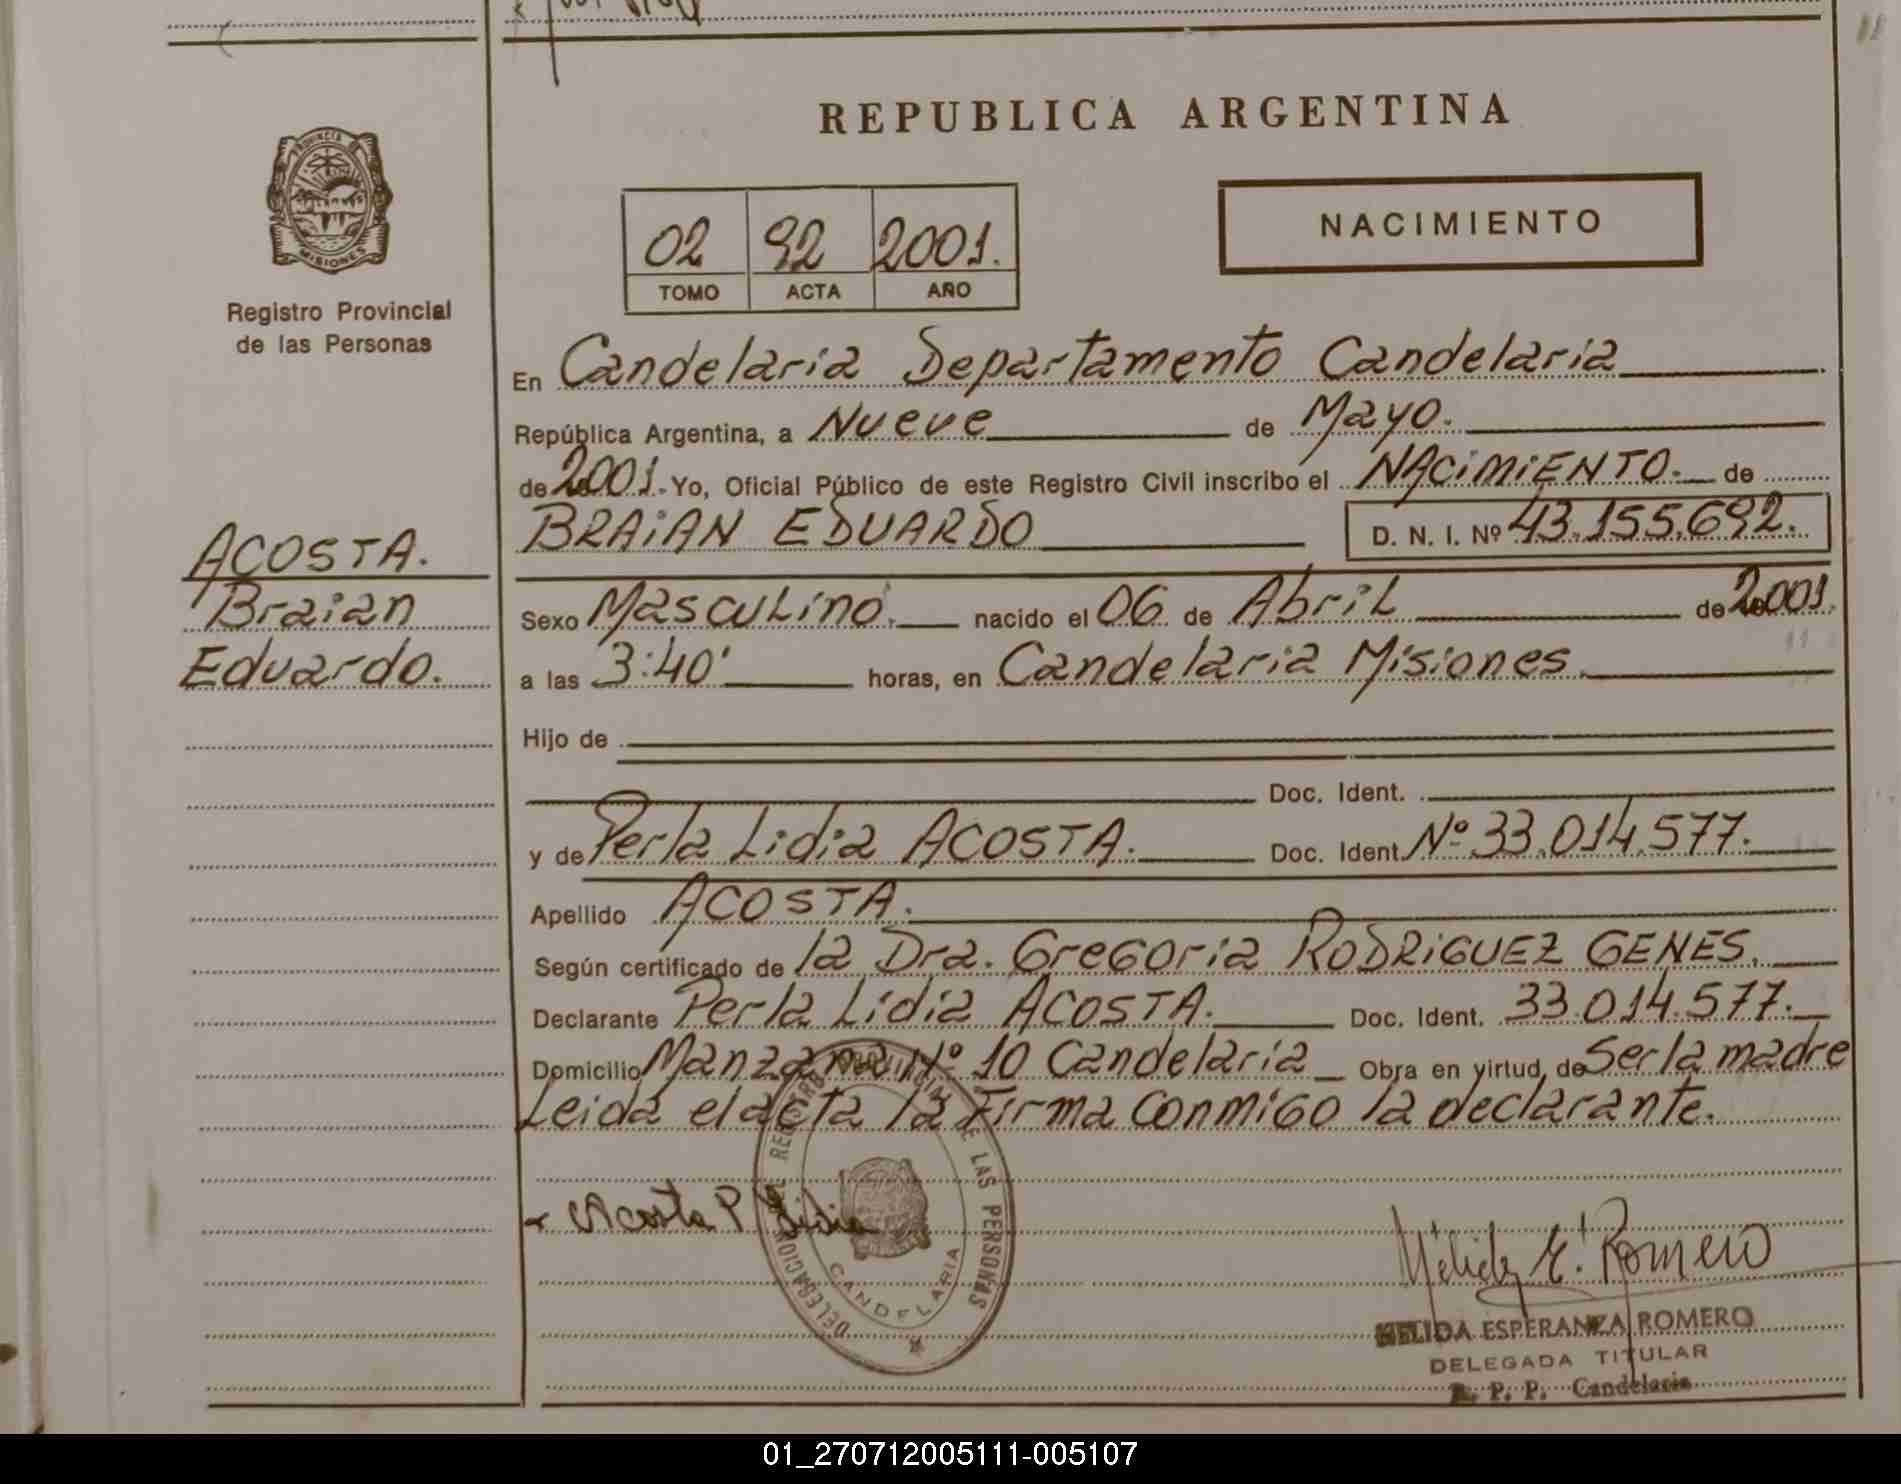 REPUBLICA ARGENTINA
PROVINCIA DE
MISIONES
Registro Provincial
de las Personas
02 92 2001.
TOMO ACTA AÑO
NACIMIENTO
En Candelaria Departamento Candelaria
República Argentina, a Nueve de Mayo.
de 2001. Yo, Oficial Público de este Registro Civil inscribo el NACIMIENTO. de
BRAIAN EDUARDO D. N. I. Nº 43.155.692.
ACOSTA.
Braian
Eduardo.
Sexo Masculino. nacido el 06 de Abril de 2001.
a las 3:40' horas, en Candelaria Misiones
Hijo de
Doc. Ident.
y de Perla Lidia ACOSTA. Doc. Ident. Nº 33.014.577.
Apellido ACOSTA.
Según certificado de la Dra. Gregoria RODRIGUEZ GENES.
Declarante Perla Lidia ACOSTA. Doc. Ident. 33.014.577.
Domicilio Manzana Nº 10 Candelaria Obra en virtud de Ser la madre
Leida el acta la Firma conmigo la declarante.
Acosta P Lidia
DELEGACION DEL REGISTRO PROVINCIAL DE LAS PERSONAS
CANDELARIA
Mélida E. Romero
MELIDA ESPERANZA ROMERO
DELEGADA TITULAR
R. P. P. Candelaria
01_270712005111-005107